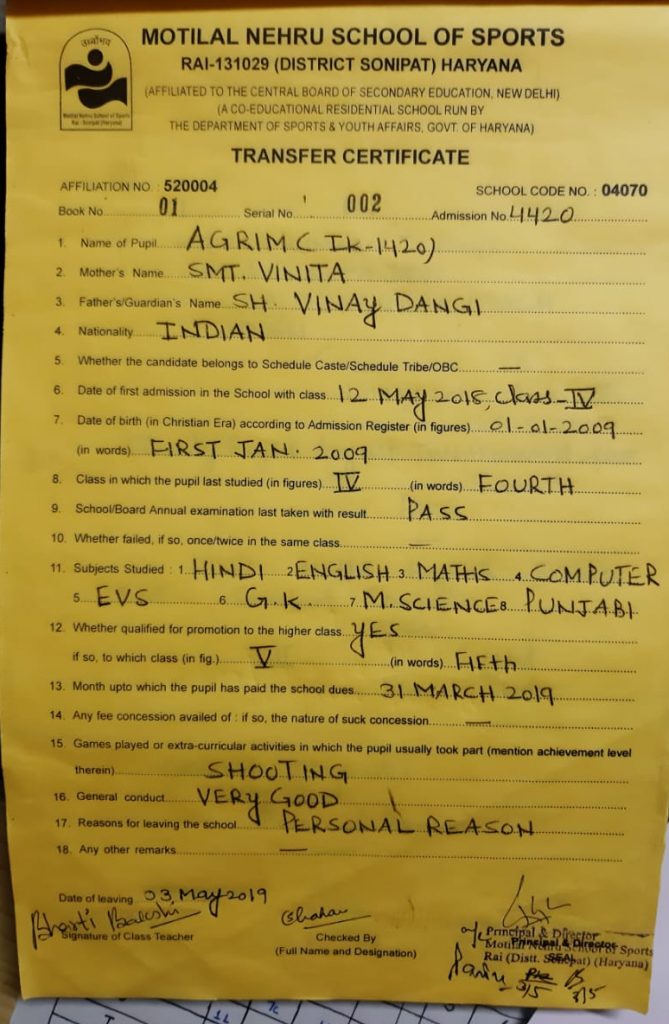 उत्तिष्ठ
Motilal Nehru School of Sports
Rai - Sonipat (Haryana)
MOTILAL NEHRU SCHOOL OF SPORTS
RAI-131029 (DISTRICT SONIPAT) HARYANA
(AFFILIATED TO THE CENTRAL BOARD OF SECONDARY EDUCATION, NEW DELHI)
(A CO-EDUCATIONAL RESIDENTIAL SCHOOL RUN BY
THE DEPARTMENT OF SPORTS & YOUTH AFFAIRS, GOVT. OF HARYANA)
TRANSFER CERTIFICATE
AFFILIATION NO. : 520004 SCHOOL CODE NO. : 04070
Book No. 01 Serial No. 002 Admission No. 4420
1. Name of Pupil AGRIM (IK-1420)
2. Mother's Name SMT. VINITA
3. Father's/Guardian's Name SH. VINAY DANGI
4. Nationality INDIAN
5. Whether the candidate belongs to Schedule Caste/Schedule Tribe/OBC —
6. Date of first admission in the School with class 12 MAY 2018, Class-IV
7. Date of birth (in Christian Era) according to Admission Register (in figures) 01-01-2009
(in words) FIRST JAN. 2009
8. Class in which the pupil last studied (in figures) IV (in words) FOURTH
9. School/Board Annual examination last taken with result PASS
10. Whether failed, if so, once/twice in the same class —
11. Subjects Studied : 1. HINDI 2 ENGLISH 3 MATHS 4 COMPUTER
5. EVS 6. G.K. 7 M.SCIENCE 8 PUNJABI
12. Whether qualified for promotion to the higher class YES
if so, to which class (in fig.) V (in words) FIFTH
13. Month upto which the pupil has paid the school dues 31 MARCH 2019
14. Any fee concession availed of : if so, the nature of suck concession —
15. Games played or extra-curricular activities in which the pupil usually took part (mention achievement level
therein) SHOOTING
16. General conduct VERY GOOD
17. Reasons for leaving the school PERSONAL REASON
18. Any other remarks —
Date of leaving 03, May 2019
Bharti Bakshi
Signature of Class Teacher
Checked By
(Full Name and Designation)
Principal & Director
Motilal Nehru School of Sports
Principal & Director
Rai (Distt. Sonepat) (Haryana)
SEAL
3/5 3/5